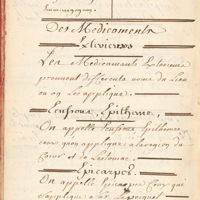 Des Medicaments
Exterieurs
Les Medicaments Exterieurs
prennent differents noms du Lieu
ou on Les applique.
Epitheme,
On appelle Epithemes
ceux qu'on applique a la region du
Coeur et de L'estomac.
Epicarpes.
On appelle Epicarpes Ceux qui
s'applique